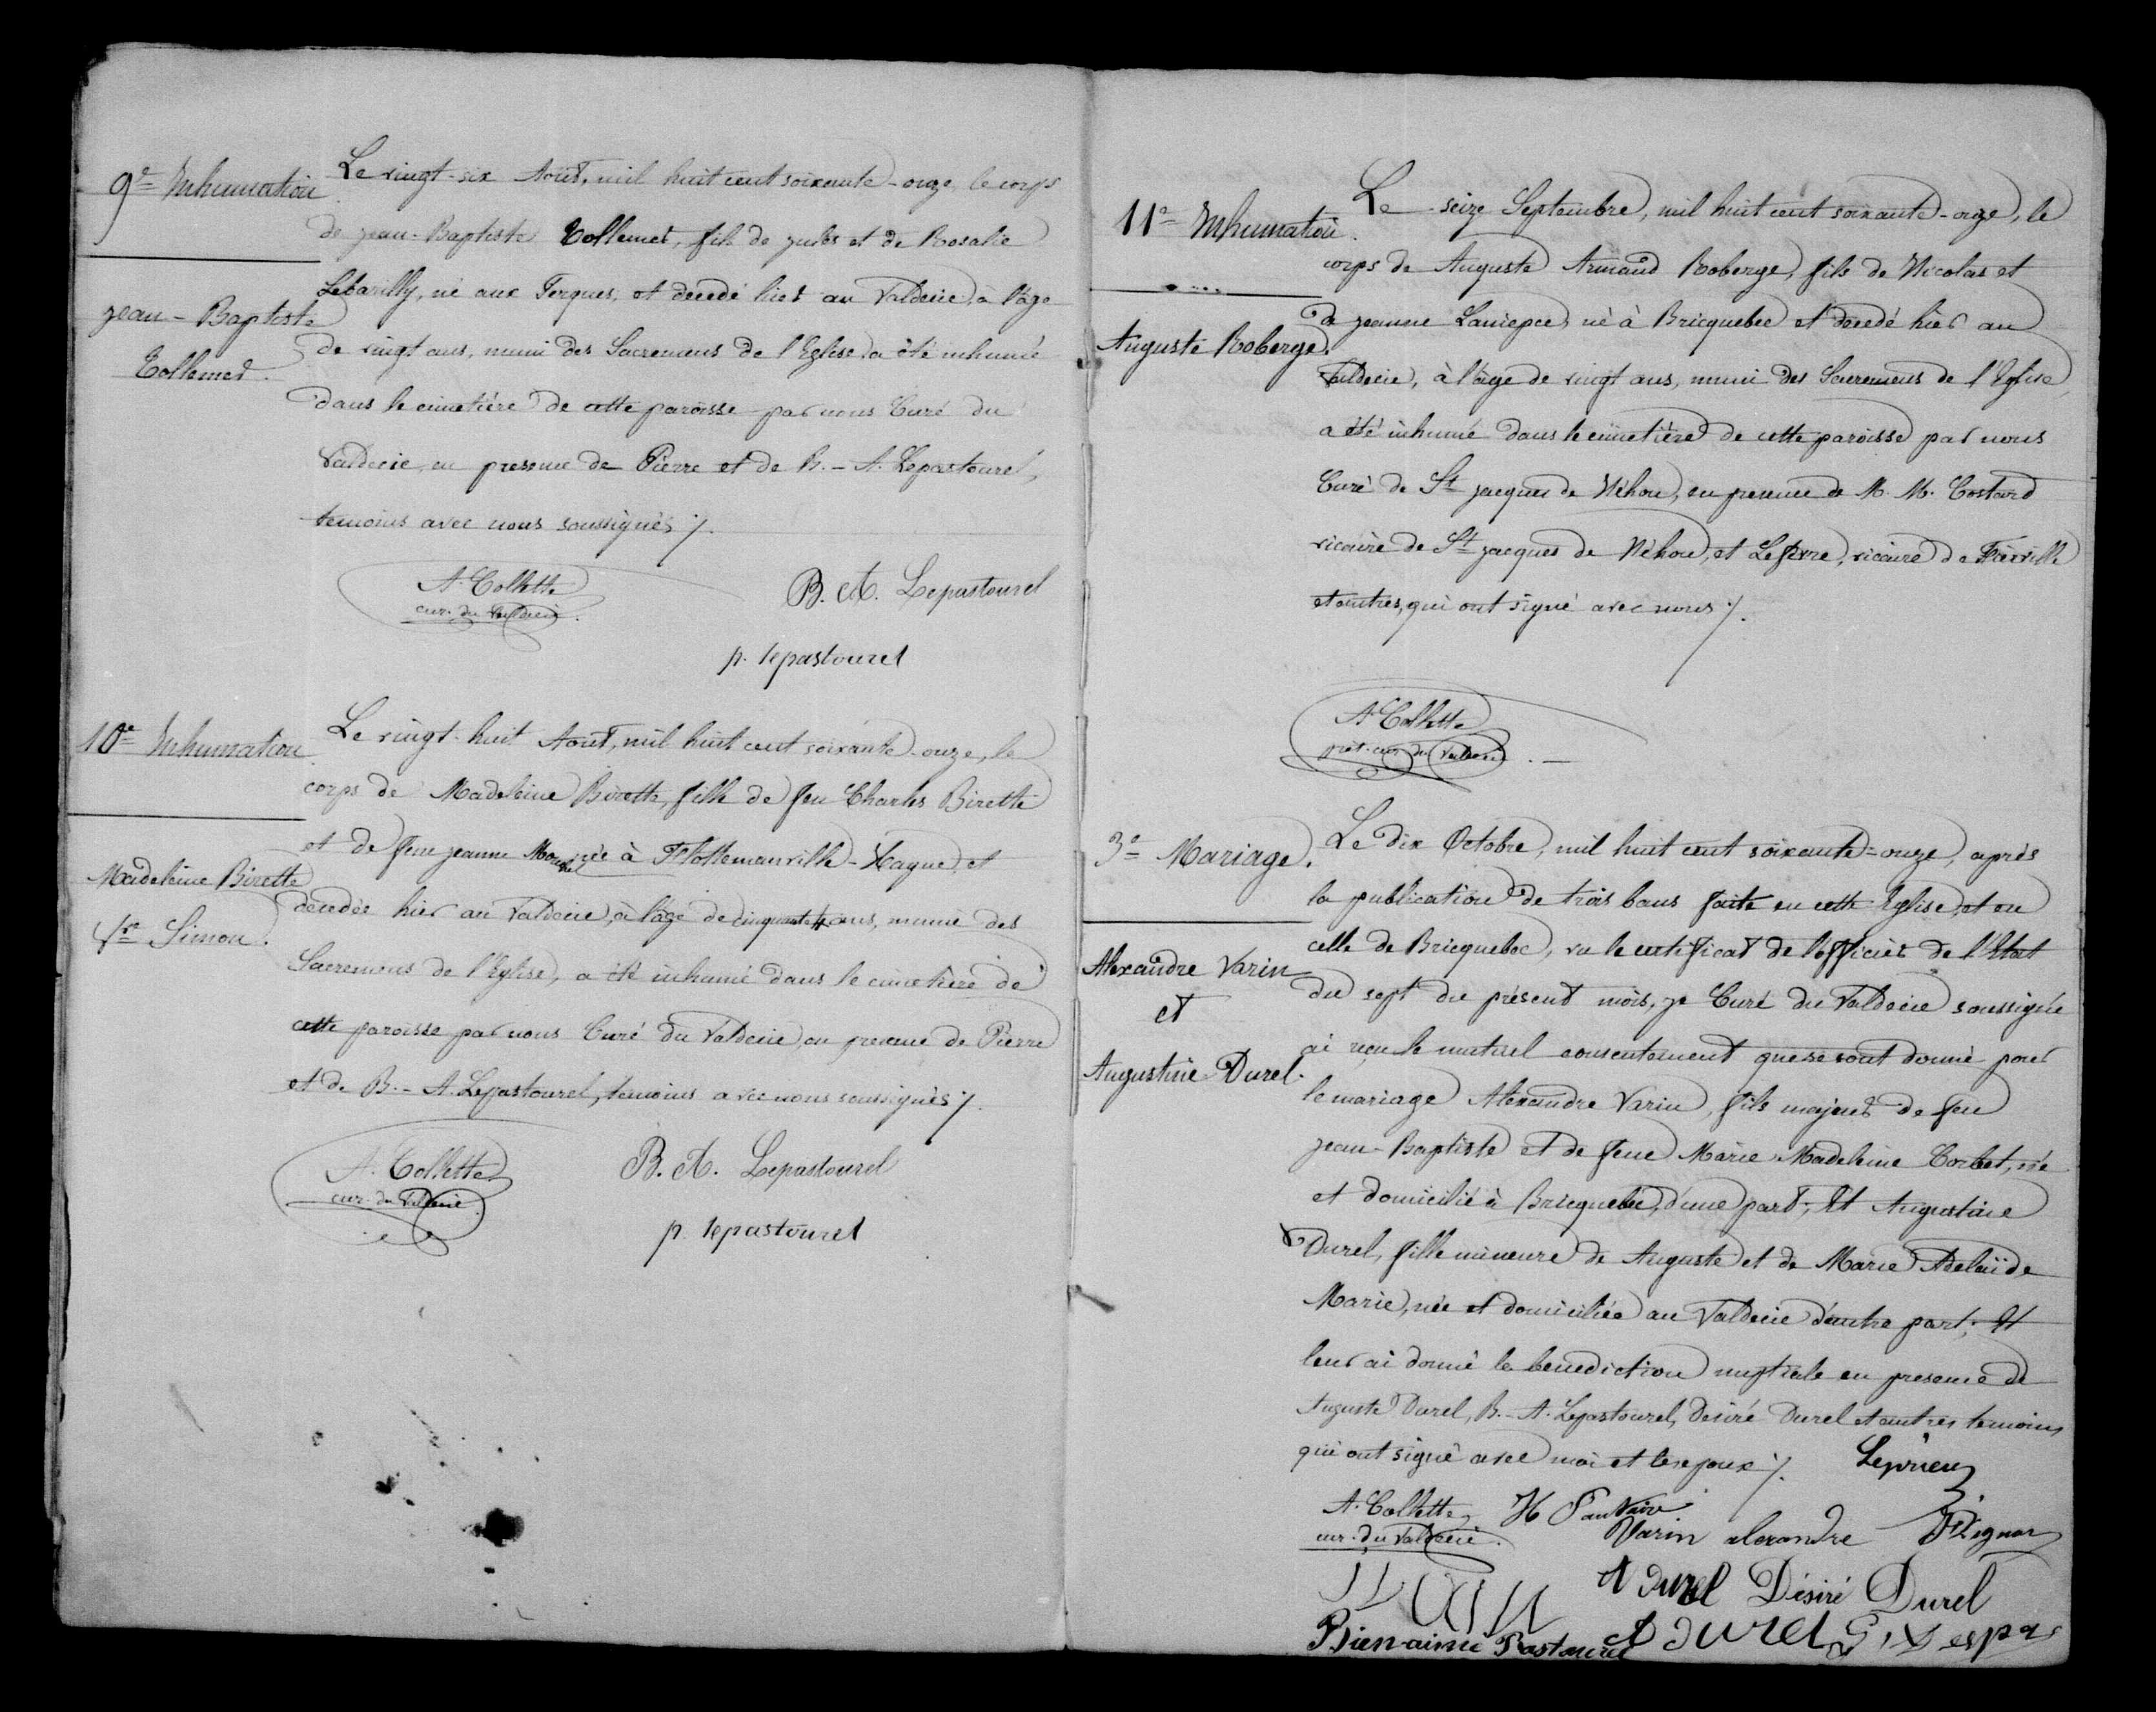 9e Inhumation
Jean-Baptiste
Tollemer.
Le vingt-six Août, mil huit cent soixante-onze, le corps
de Jean-Baptiste Tollemer, fils de Jules et de Rosalie
Lebarilly, né aux Perques, et décédé hier au Valdecie, à l'âge
de vingt ans, muni des Sacremens de l'Eglise, a été inhumé
dans le cimetière de cette paroisse par nous Curé du
Valdecie, en presence de Pierre et de B.-A. Lepastourel,
temoins avec nous soussignés ./.
A. Collette
cur. du Valdecie.
B. A. Lepastourel
p. lepastourel
10e Inhumation
Madeleine Birette
Vve Simon.
Le vingt-huit Août, mil huit cent soixante-onze, le
corps de Madeleine Birette, fille de feu Charles Birette
et de feue Jeanne née à Flottemanville-Hague, et
décédée hier au Valdecie, à l'âge de cinquante 4 ans, munie des
Sacremens de l'Eglise, a été inhumé dans le cimetière de
cette paroisse par nous Curé du Valdecie, en presence de Pierre
et de B.-A. Lepastourel, temoins avec nous soussignés ./.
A. Collette
cur. du Valdecie.
B. A. Lepastourel
p. lepastourel
11e Inhumation.
Auguste Roberge.
Le seize Septembre, mil huit cent soixante-onze, le
corps de Auguste Armand Roberge, fils de Nicolas et
de Jeanne Laniepce, né à Bricquebec et décedé hier au
Valdecie, à l'âge de vingt ans, muni des Sacremens de l'Eglise,
a été inhumé dans le cimetière de cette paroisse par nous
Curé de St Jacques de Néhou, en presence de M. M. Costard
vicaire de St Jacques de Néhou, et Lefevre, vicaire de
et autres, qui ont signé avec nous ./.
A. Collette
prêt. cur. du Valdecie.
3e Mariage.
Alexandre Varin
et
Augustine Durel.
Le dix Octobre, mil huit cent soixante-onze, après
la publication de trois bans faite en cette Eglise, et en
celle de Bricquebec, vu le certificat de l'officier de l'Etat
du sept du présent mois, je Curé du Valdecie soussigné
ai reçu le mutuel consentement que se sont donné pour
le mariage Alexandre Varin, fils majeur de feu
Jean-Baptiste et de feue Marie Madeleine Corbet, né
et domicilié à Bricquebec, d'une part; Et Augustine
Durel, fille mineure de Auguste et de Marie Adelaïde
Marie, née et domiciliée au Valdecie d'autre part; Et
leur ai donné la benediction nuptiale en presence de
Auguste Durel, B.-A. Lepastourel, Desiré Durel et autres temoins
qui ont signé avec moi et les epoux ./. Leprieur
A. Collette
cur. du Valdecie.
Varin alexandre
A Durel Désiré Durel
Bien-aimé Pastourel A Durel